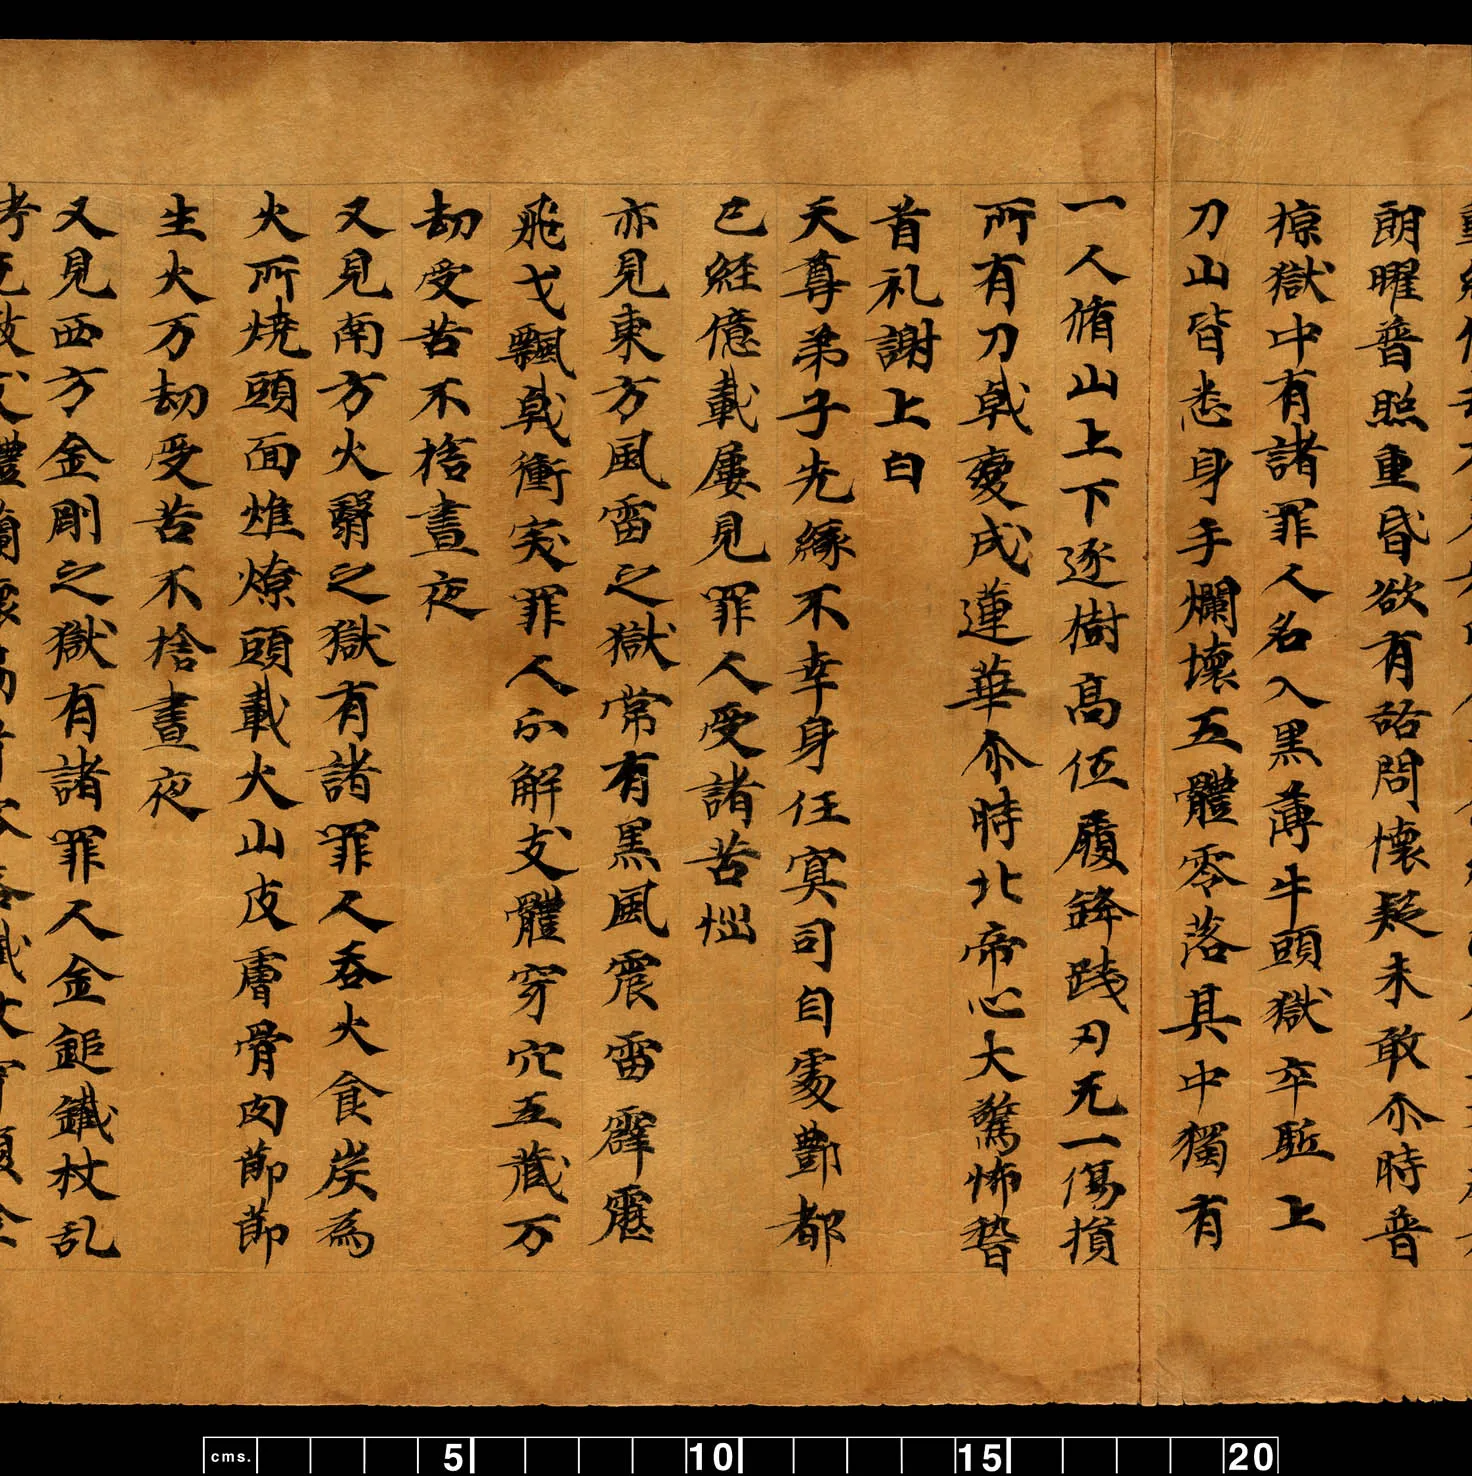 朗曜普照重昏欲有諮問懷疑未敢尒時普
掠獄中有諸罪人名入黑薄牛頭獄卒駈上
刀山皆悉身手爛壞五體零落其中獨有
一人脩山上下逐樹高伍履鋒践刃无一傷損
所有刀戟變成蓮華尒時北帝心大驚怖稽
首礼謝上白
天尊弟子先緣不幸身任寞司自處酆都
已経億載屢見罪人受諸苦惱
亦見東方風雷之獄常有黑風震雷霹靂
飛戈飄戟衝突罪人分解支體穿穴五藏万
劫受苦不捨晝夜
又見南方火翳之獄有諸罪人吞火食炭為
火所燒頭面燋燎頭戴火山皮膚骨肉節節
生火万劫受苦不捨晝夜
又見西方金剛之獄有諸罪人金鎚鐵杖乱